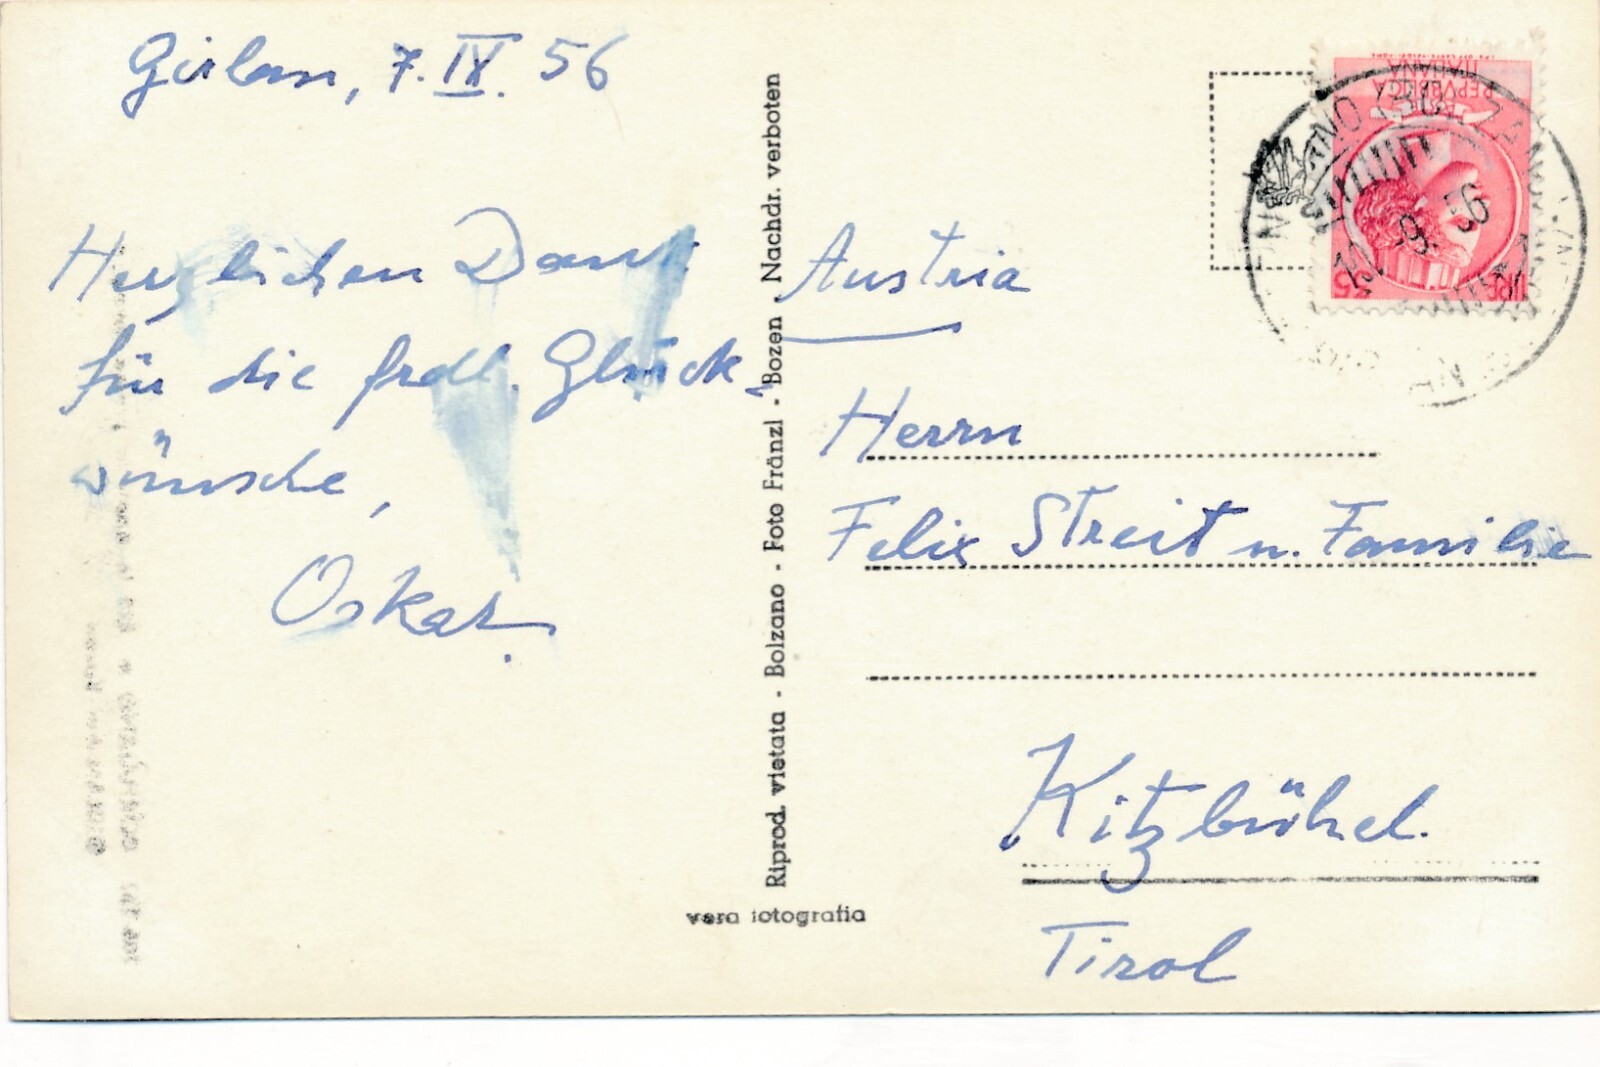 Girlan, 7. IX. 56
Herzlichen Dank
für die frdl. Glück-
wünsche,
Oskar.
Riprod. vietata - Bolzano - Foto Fränzl - Bozen Nachdr. verboten
vera fotografia
REPVBBLICA
ITALIANA
LIRE
35
BOLZANO
10 -9. 56
Austria
Herrn
Felix Streit u. Familie
Kitzbühel.
Tirol